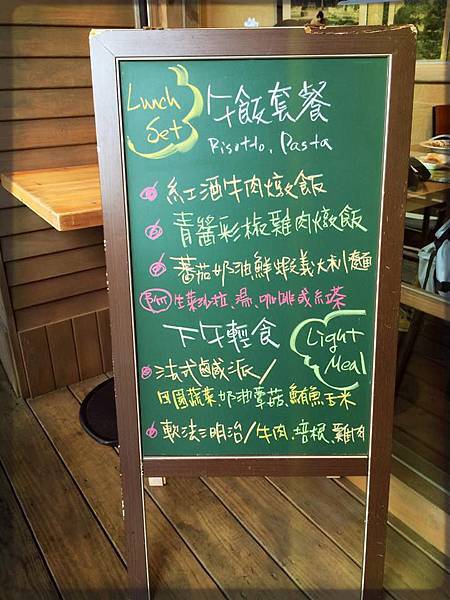 Lunch Set
午飯套餐
Risotto, Pasta
紅酒牛肉燉飯
青醬彩椒雞肉燉飯
蕃茄奶油鮮蝦義大利麵
附 生菜沙拉、湯、咖啡或紅茶
下午輕食
Light Meal
法式鹹派/
田園蔬菜、奶油蘑菇、鮪魚玉米
軟法三明治/牛肉、培根、雞肉